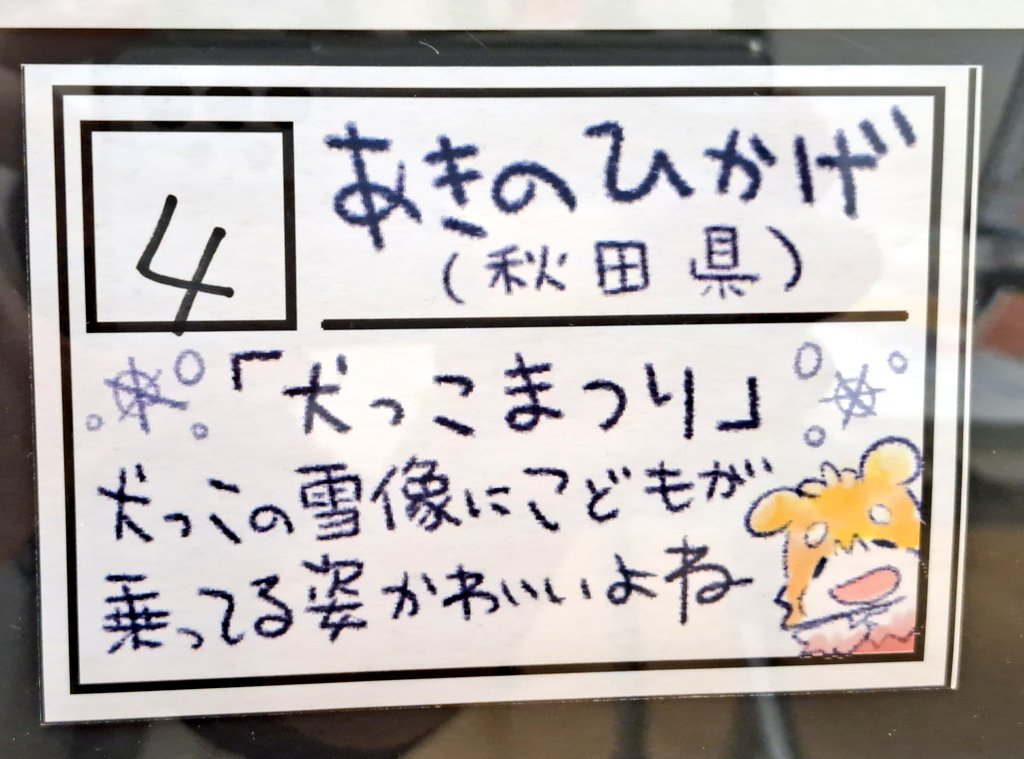 4
あきのひかげ
(秋田県)
「犬っこまつり」
犬っこの雪像にこどもが
乗ってる姿かわいいよね